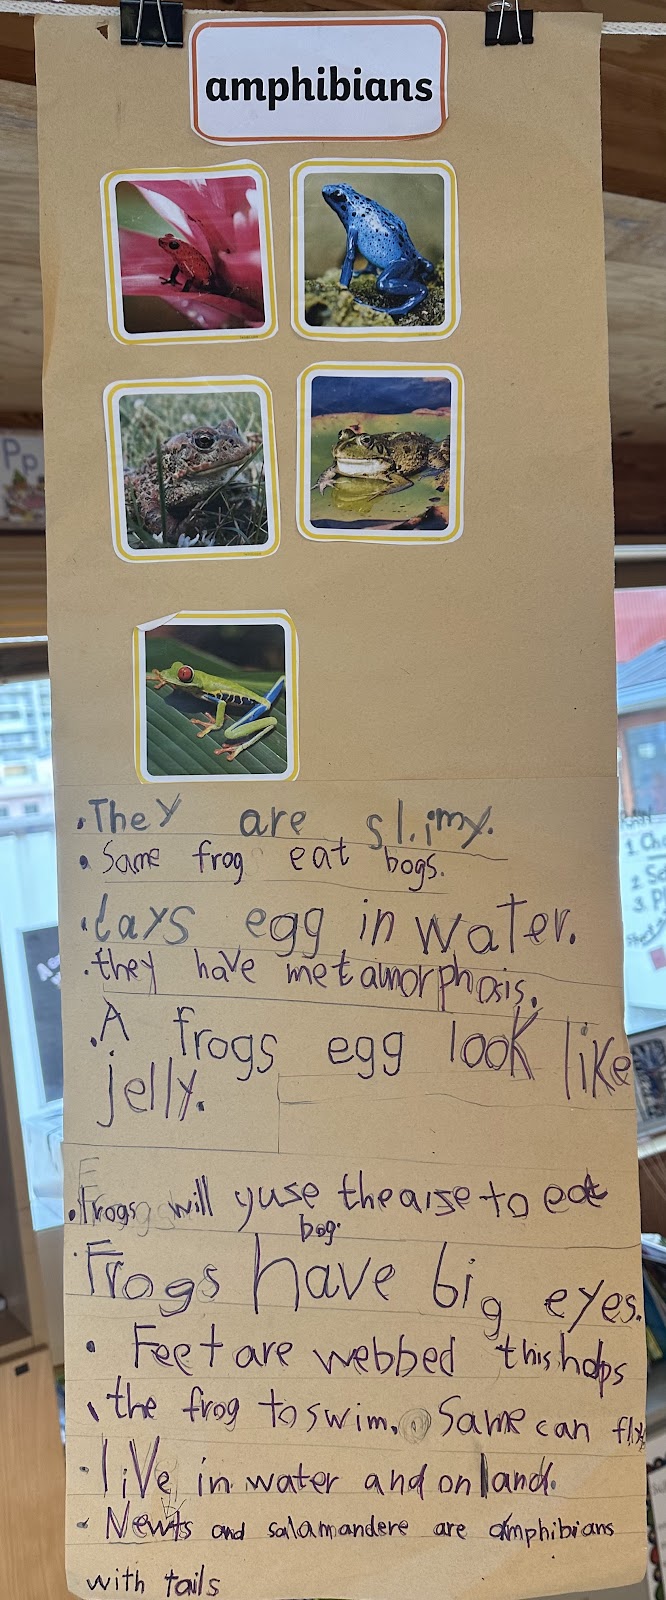 amphibians
• They are slimy.
• Same frog eat bogs.
• Lays egg in water.
• they have metamorphosis.
• A frogs egg look like
jelly.
• Frogs will yuse the aise to eat
bog.
• Frogs have big eyes.
• Feet are webbed this holps
• the frog to swim. Same can fly
• live in water and on land.
• Newts and salamandere are amphibians
with tails
Pp